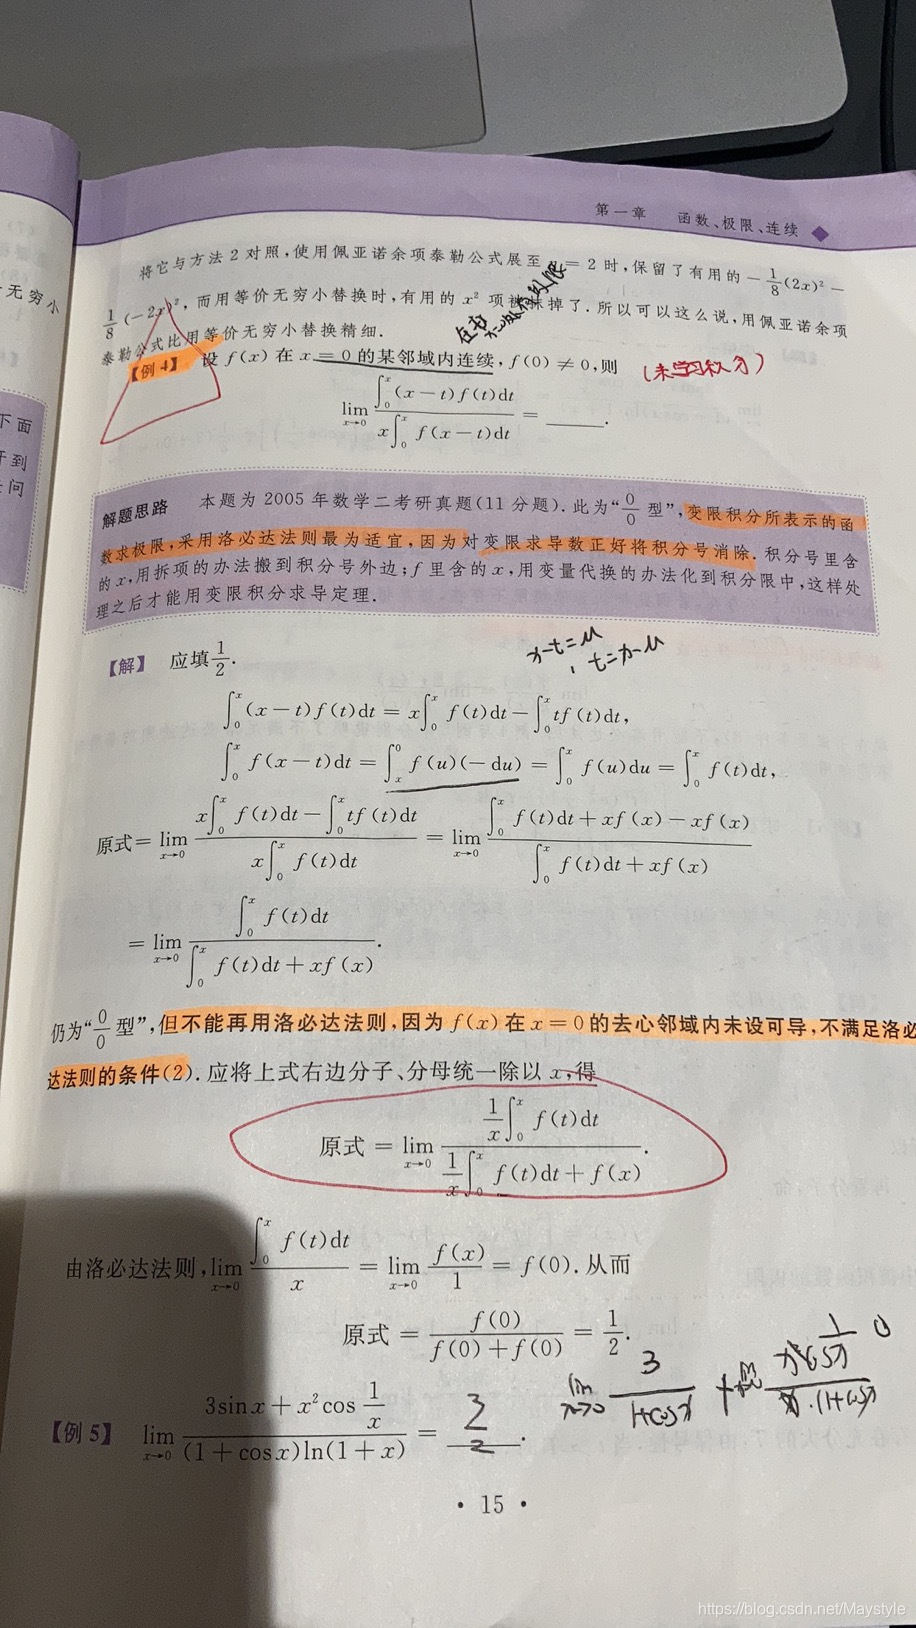 第一章 函数、极限、连续
将它与方法 2 对照,使用佩亚诺余项泰勒公式展至 = 2 时,保留了有用的 −1/8(2x)² −
1/8(−2x)²,而用等价无穷小替换时,有用的 x² 项被抹掉了.所以可以这么说,用佩亚诺余项
泰勒公式比用等价无穷小替换精细.
【例 4】 设 f(x) 在 x = 0 的某邻域内连续, f(0) ≠ 0,则 (未学习积分)
lim_{x→0} ∫_0^x (x−t)f(t)dt / x∫_0^x f(x−t)dt = ____.
解题思路 本题为 2005 年数学二考研真题(11 分题).此为“0/0 型”,变限积分所表示的函
数求极限,采用洛必达法则最为适宜,因为对变限求导数正好将积分号消除.积分号里含
的 x,用拆项的办法搬到积分号外边; f 里含的 x,用变量代换的办法化到积分限中,这样处
理之后才能用变限积分求导定理.
x−t=u
t=x−u
【解】 应填 1/2.
∫_0^x (x−t)f(t)dt = x∫_0^x f(t)dt − ∫_0^x tf(t)dt,
∫_0^x f(x−t)dt = ∫_x^0 f(u)(−du) = ∫_0^x f(u)du = ∫_0^x f(t)dt,
原式 = lim_{x→0} x∫_0^x f(t)dt − ∫_0^x tf(t)dt / x∫_0^x f(t)dt = lim_{x→0} ∫_0^x f(t)dt + xf(x) − xf(x) / ∫_0^x f(t)dt + xf(x)
= lim_{x→0} ∫_0^x f(t)dt / ∫_0^x f(t)dt + xf(x).
仍为“0/0 型”,但不能再用洛必达法则,因为 f(x) 在 x = 0 的去心邻域内未设可导,不满足洛必
达法则的条件(2).应将上式右边分子、分母统一除以 x,得
原式 = lim_{x→0} 1/x∫_0^x f(t)dt / 1/x∫_0^x f(t)dt + f(x).
由洛必达法则, lim_{x→0} ∫_0^x f(t)dt / x = lim_{x→0} f(x)/1 = f(0).从而
原式 = f(0) / f(0) + f(0) = 1/2.
lim_{x→0} 3/1+cosx +
【例 5】 lim_{x→0} 3sinx + x²cos 1/x / (1+cosx)ln(1+x) = 3/2.
· 15 ·
https://blog.csdn.net/Maystyle